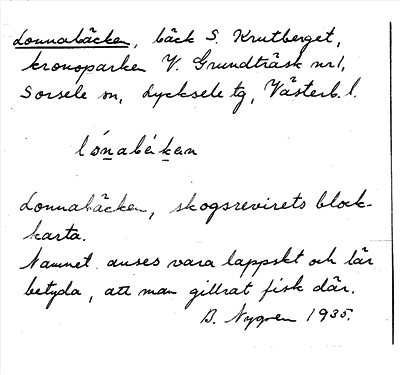 Lonnabäcken, bäck S. Krutberget,
kronoparken V. Grundträsk nr 1,
Sorsele sn, Lycksele tg, Västerb. l.
lónabèken
Lonnabäcken, skogsrevirets block-
karta.
Namnet anses vara lappskt och lär
betyda, att man gillrat fisk där.
B. Nygren 1935.